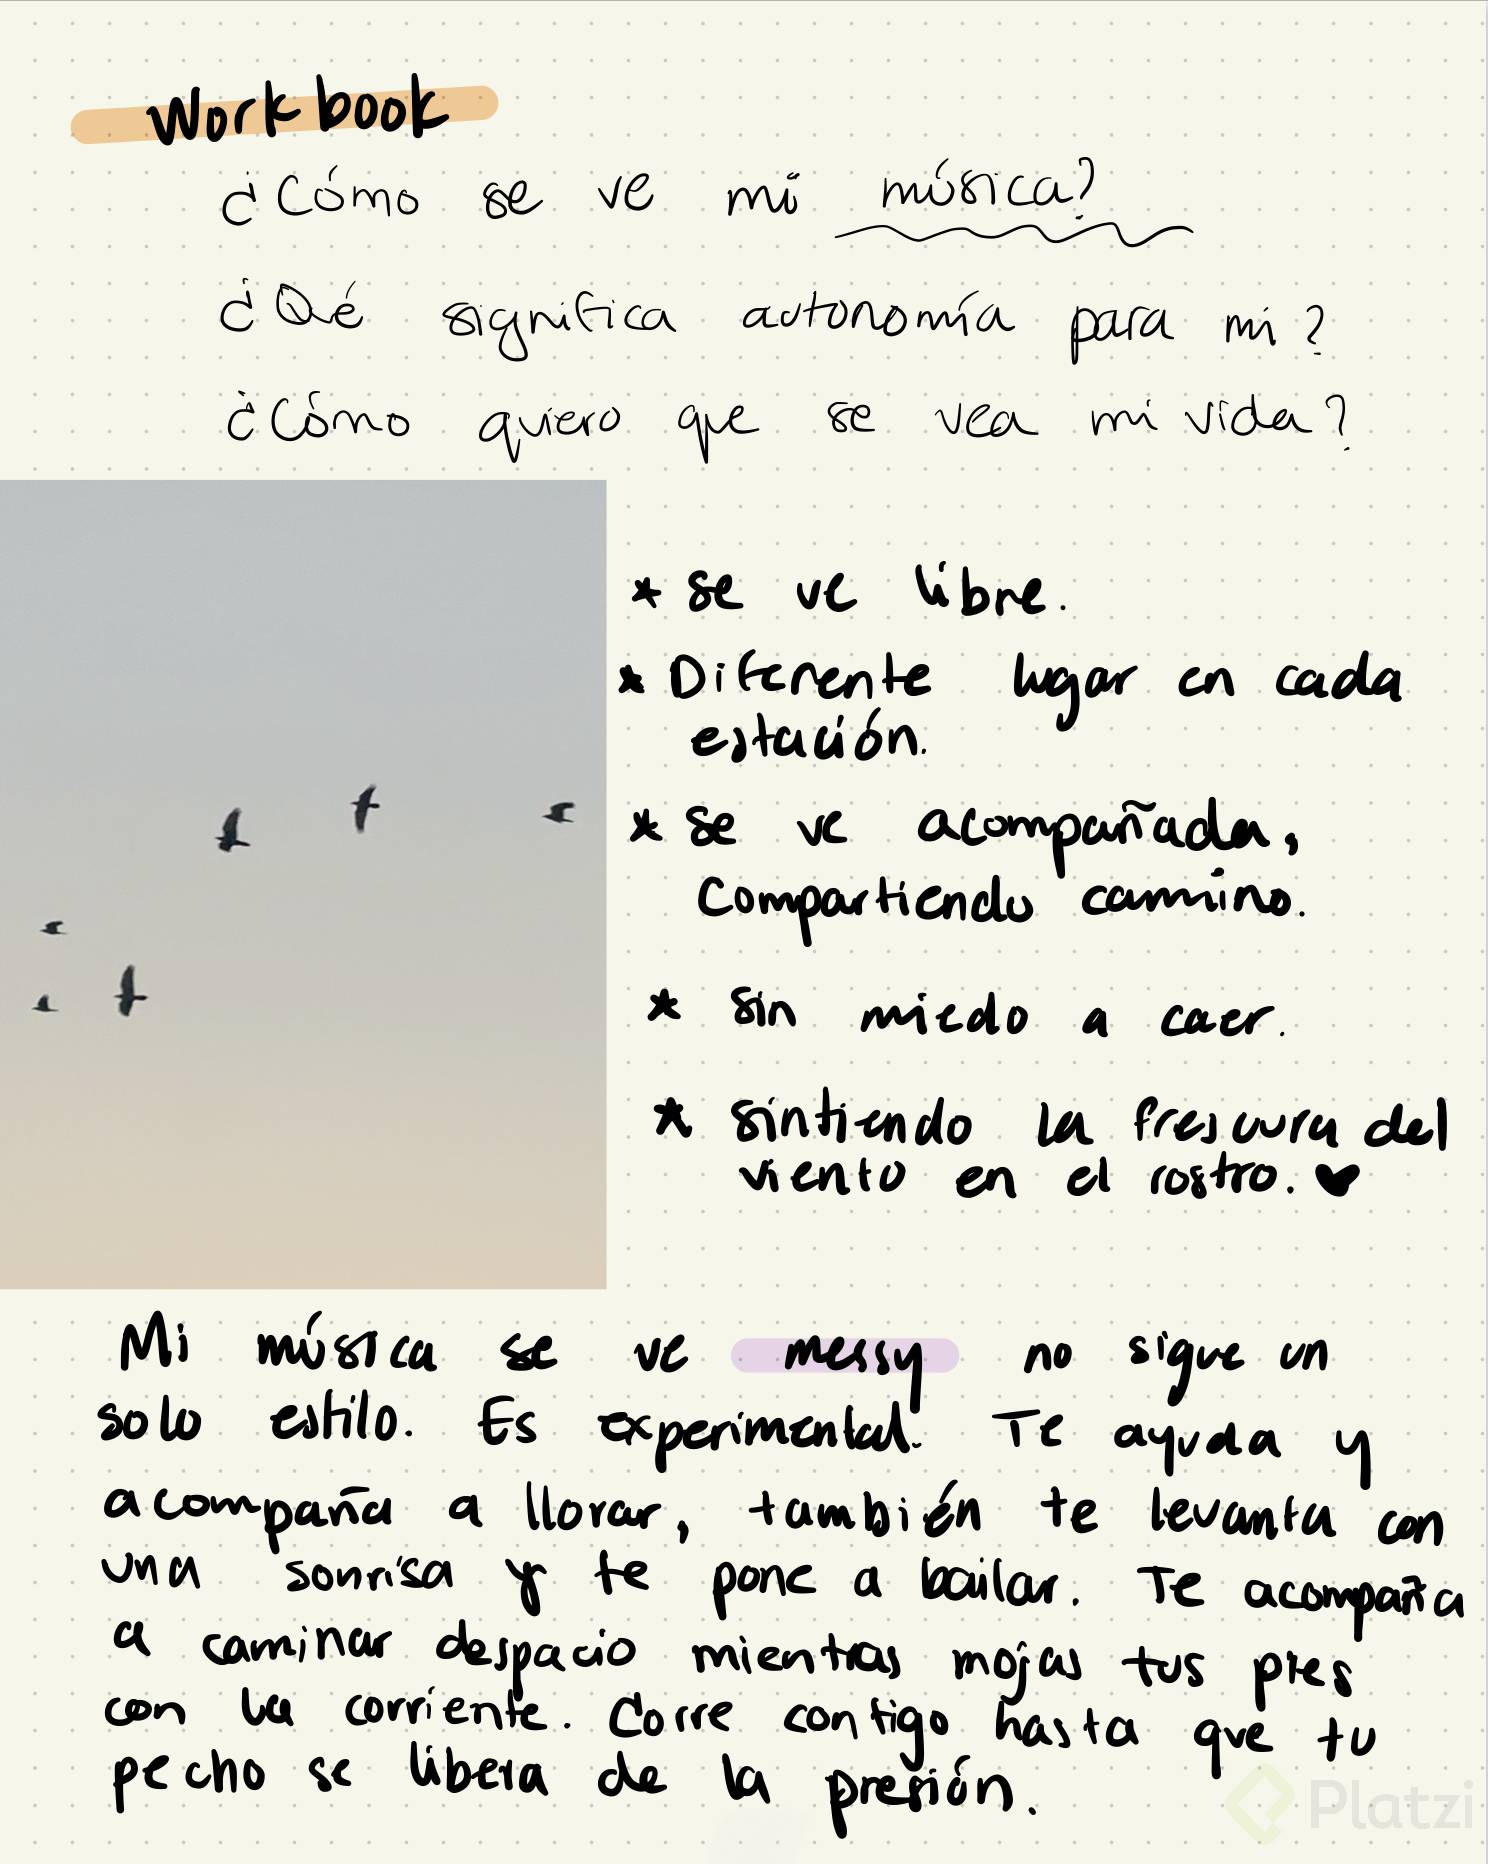 Workbook
¿Cómo se ve mi música?
¿Qué significa autonomía para mi?
¿Cómo quiero que se vea mi vida?
* Se ve libre.
* Diferente lugar en cada
estación.
* Se ve acompañada,
Compartiendo camino.
* Sin miedo a caer.
* Sintiendo la frescura del
viento en el rostro. ♥
Mi música se ve messy no sigue un
solo estilo. Es experimental. Te ayuda y
acompaña a llorar, también te levanta con
una sonrisa y te pone a bailar. Te acompaña
a caminar despacio mientras mojas tus pies
con la corriente. Corre contigo hasta que tu
pecho se libera de la presión.
Platzi